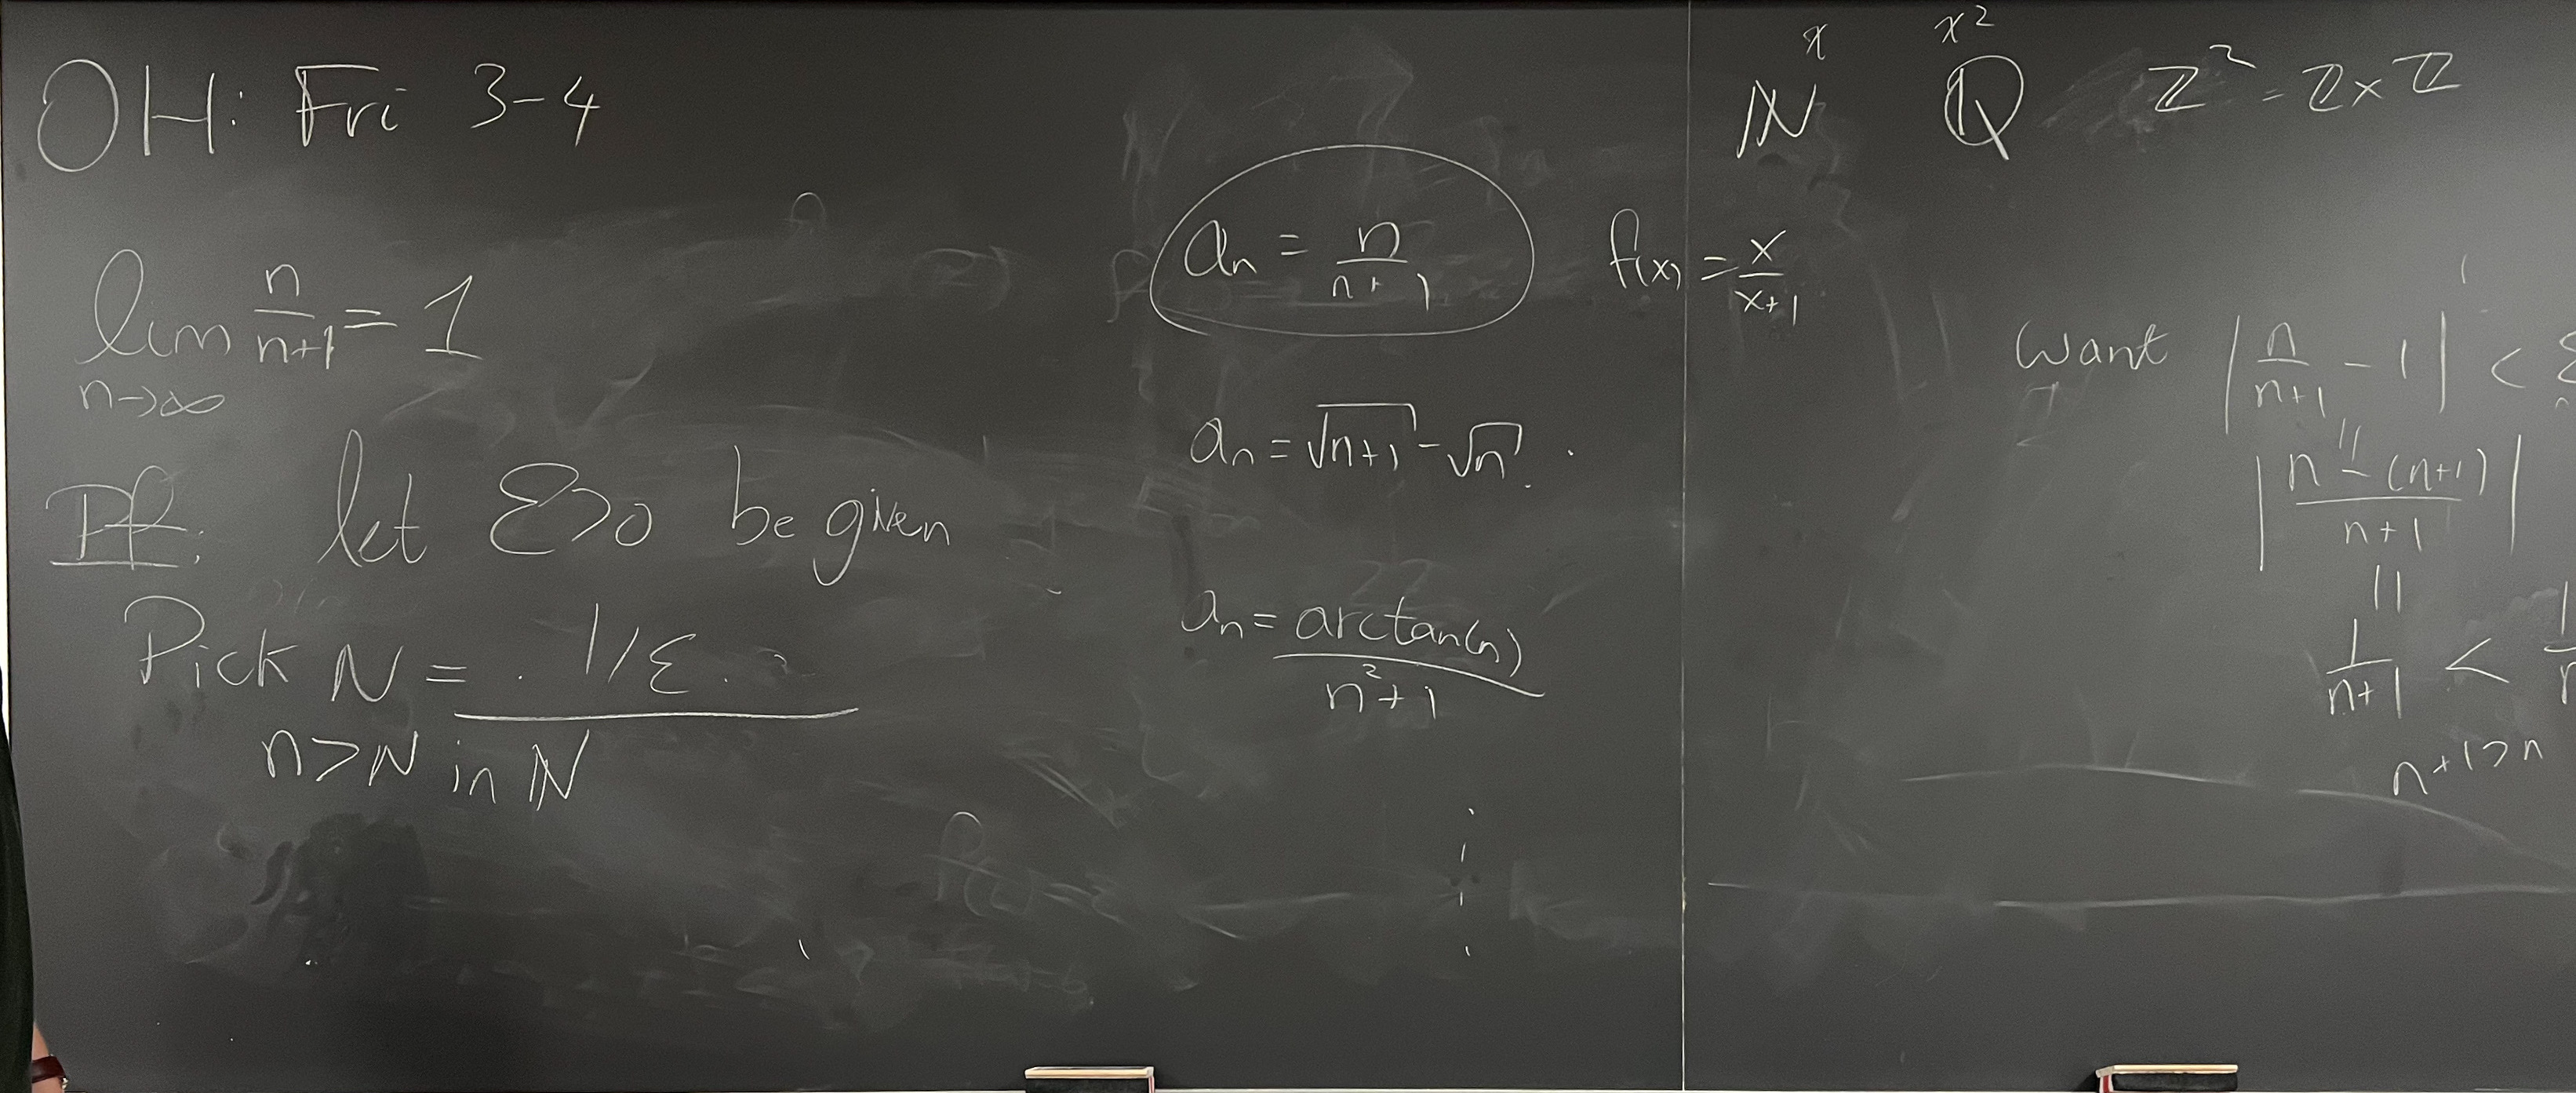 OH: Fri 3-4
lim n→∞ n/(n+1) = 1
Pf: let ε>0 be given
Pick N = 1/ε
n>N in ℕ
aₙ = n/(n+1)
f(x) = x/(x+1)
aₙ = √(n+1) - √n
aₙ = arctan(n)/(n²+1)
x x²
ℕ ℚ ℤ² = ℤ×ℤ
Want |n/(n+1) - 1| < ε
||
|(n - (n+1))/(n+1)|
||
1/(n+1) <
n+1>n